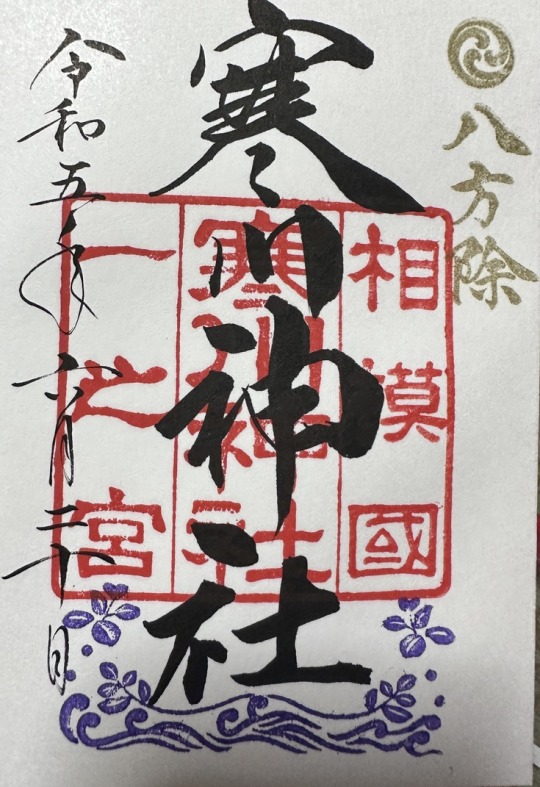 八方除
寒川神社
相模國
寒川神社
一之宮
令和五年六月三十日